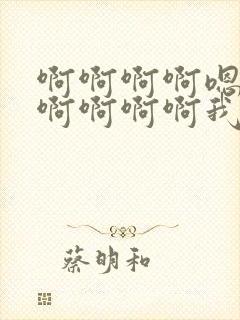 啊啊啊啊嗯
啊啊啊啊我
蔡明和